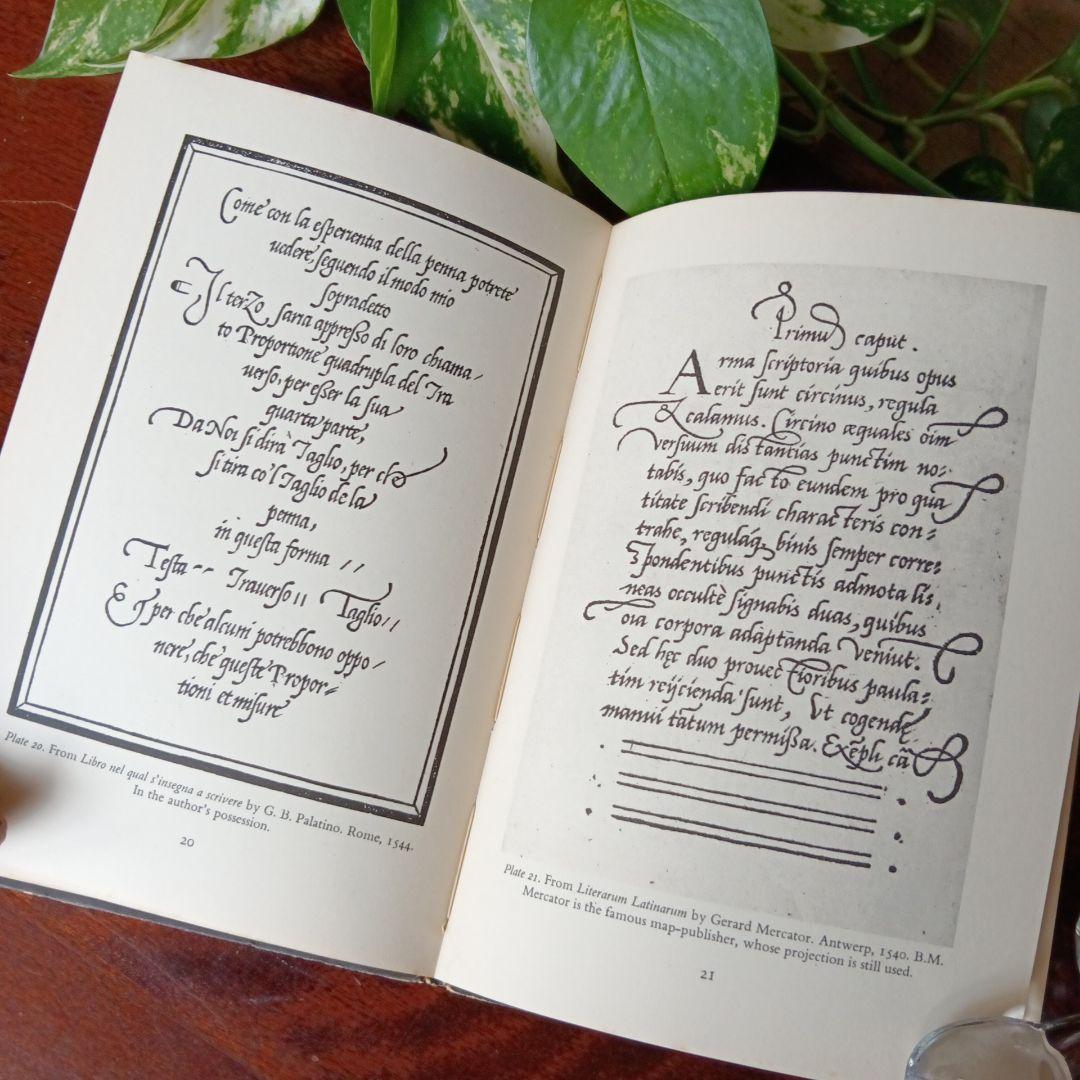 Come con la esperientia della penna potrete
uedere, seguendo il modo mio
sopradetto
Il terzo, sara appresso di loro chiama-
to Proportione quadrupla del Tra
uerso, per esser la sua
quarta parte,
Da Noi si dirà Taglio, per che
si tira co'l Taglio de la
penna,
in questa forma //
Testa -- Trauerso // Taglio //
Et per che alcuni potrebbono oppo-
nere, che queste Propor=
tioni et misure
Plate 20. From Libro nel qual s'insegna a scrivere by G. B. Palatino. Rome, 1544.
In the author's possession.
20
Primus caput.
Arma scriptoria quibus opus
erit sunt circinus, regula
& calamus. Circino æquales oim
versuum distantias punctim no-
tabis, quo facto eundem pro qua
titate scribendi characteris con=
trahe, regulaq binis semper corre=
spondentibus punctis admota lis,
neas occultè signabis duas, quibus
oia corpora adaptanda veniut.
Sed hęc duo prouectioribus paula=
tim reijcienda sunt, Vt cogendę
manui tatum permißa. Exepli cã
Plate 21. From Literarum Latinarum by Gerard Mercator. Antwerp, 1540. B.M.
Mercator is the famous map-publisher, whose projection is still used.
21